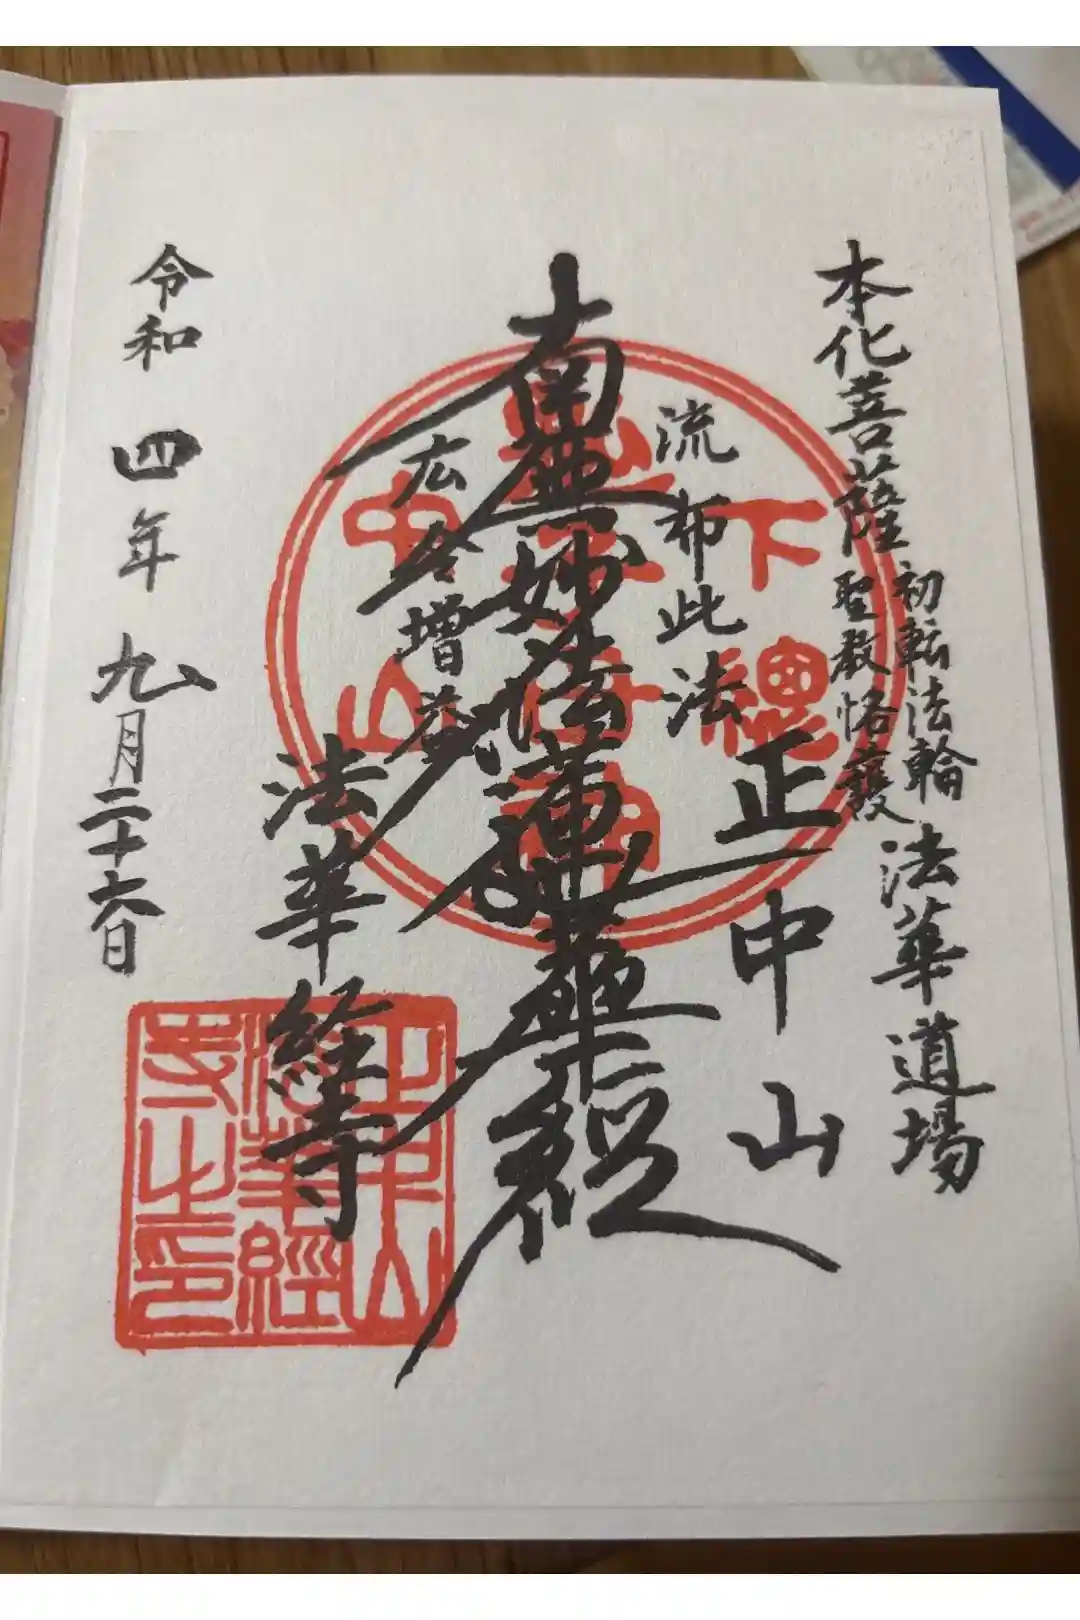 本化菩薩
初転法輪
聖教恪護
法華道場
正中山
流布此法
南無妙法蓮華経
広令増益
法華経寺
令和四年九月二十六日
下總
中山
正中山
法華經
寺之印